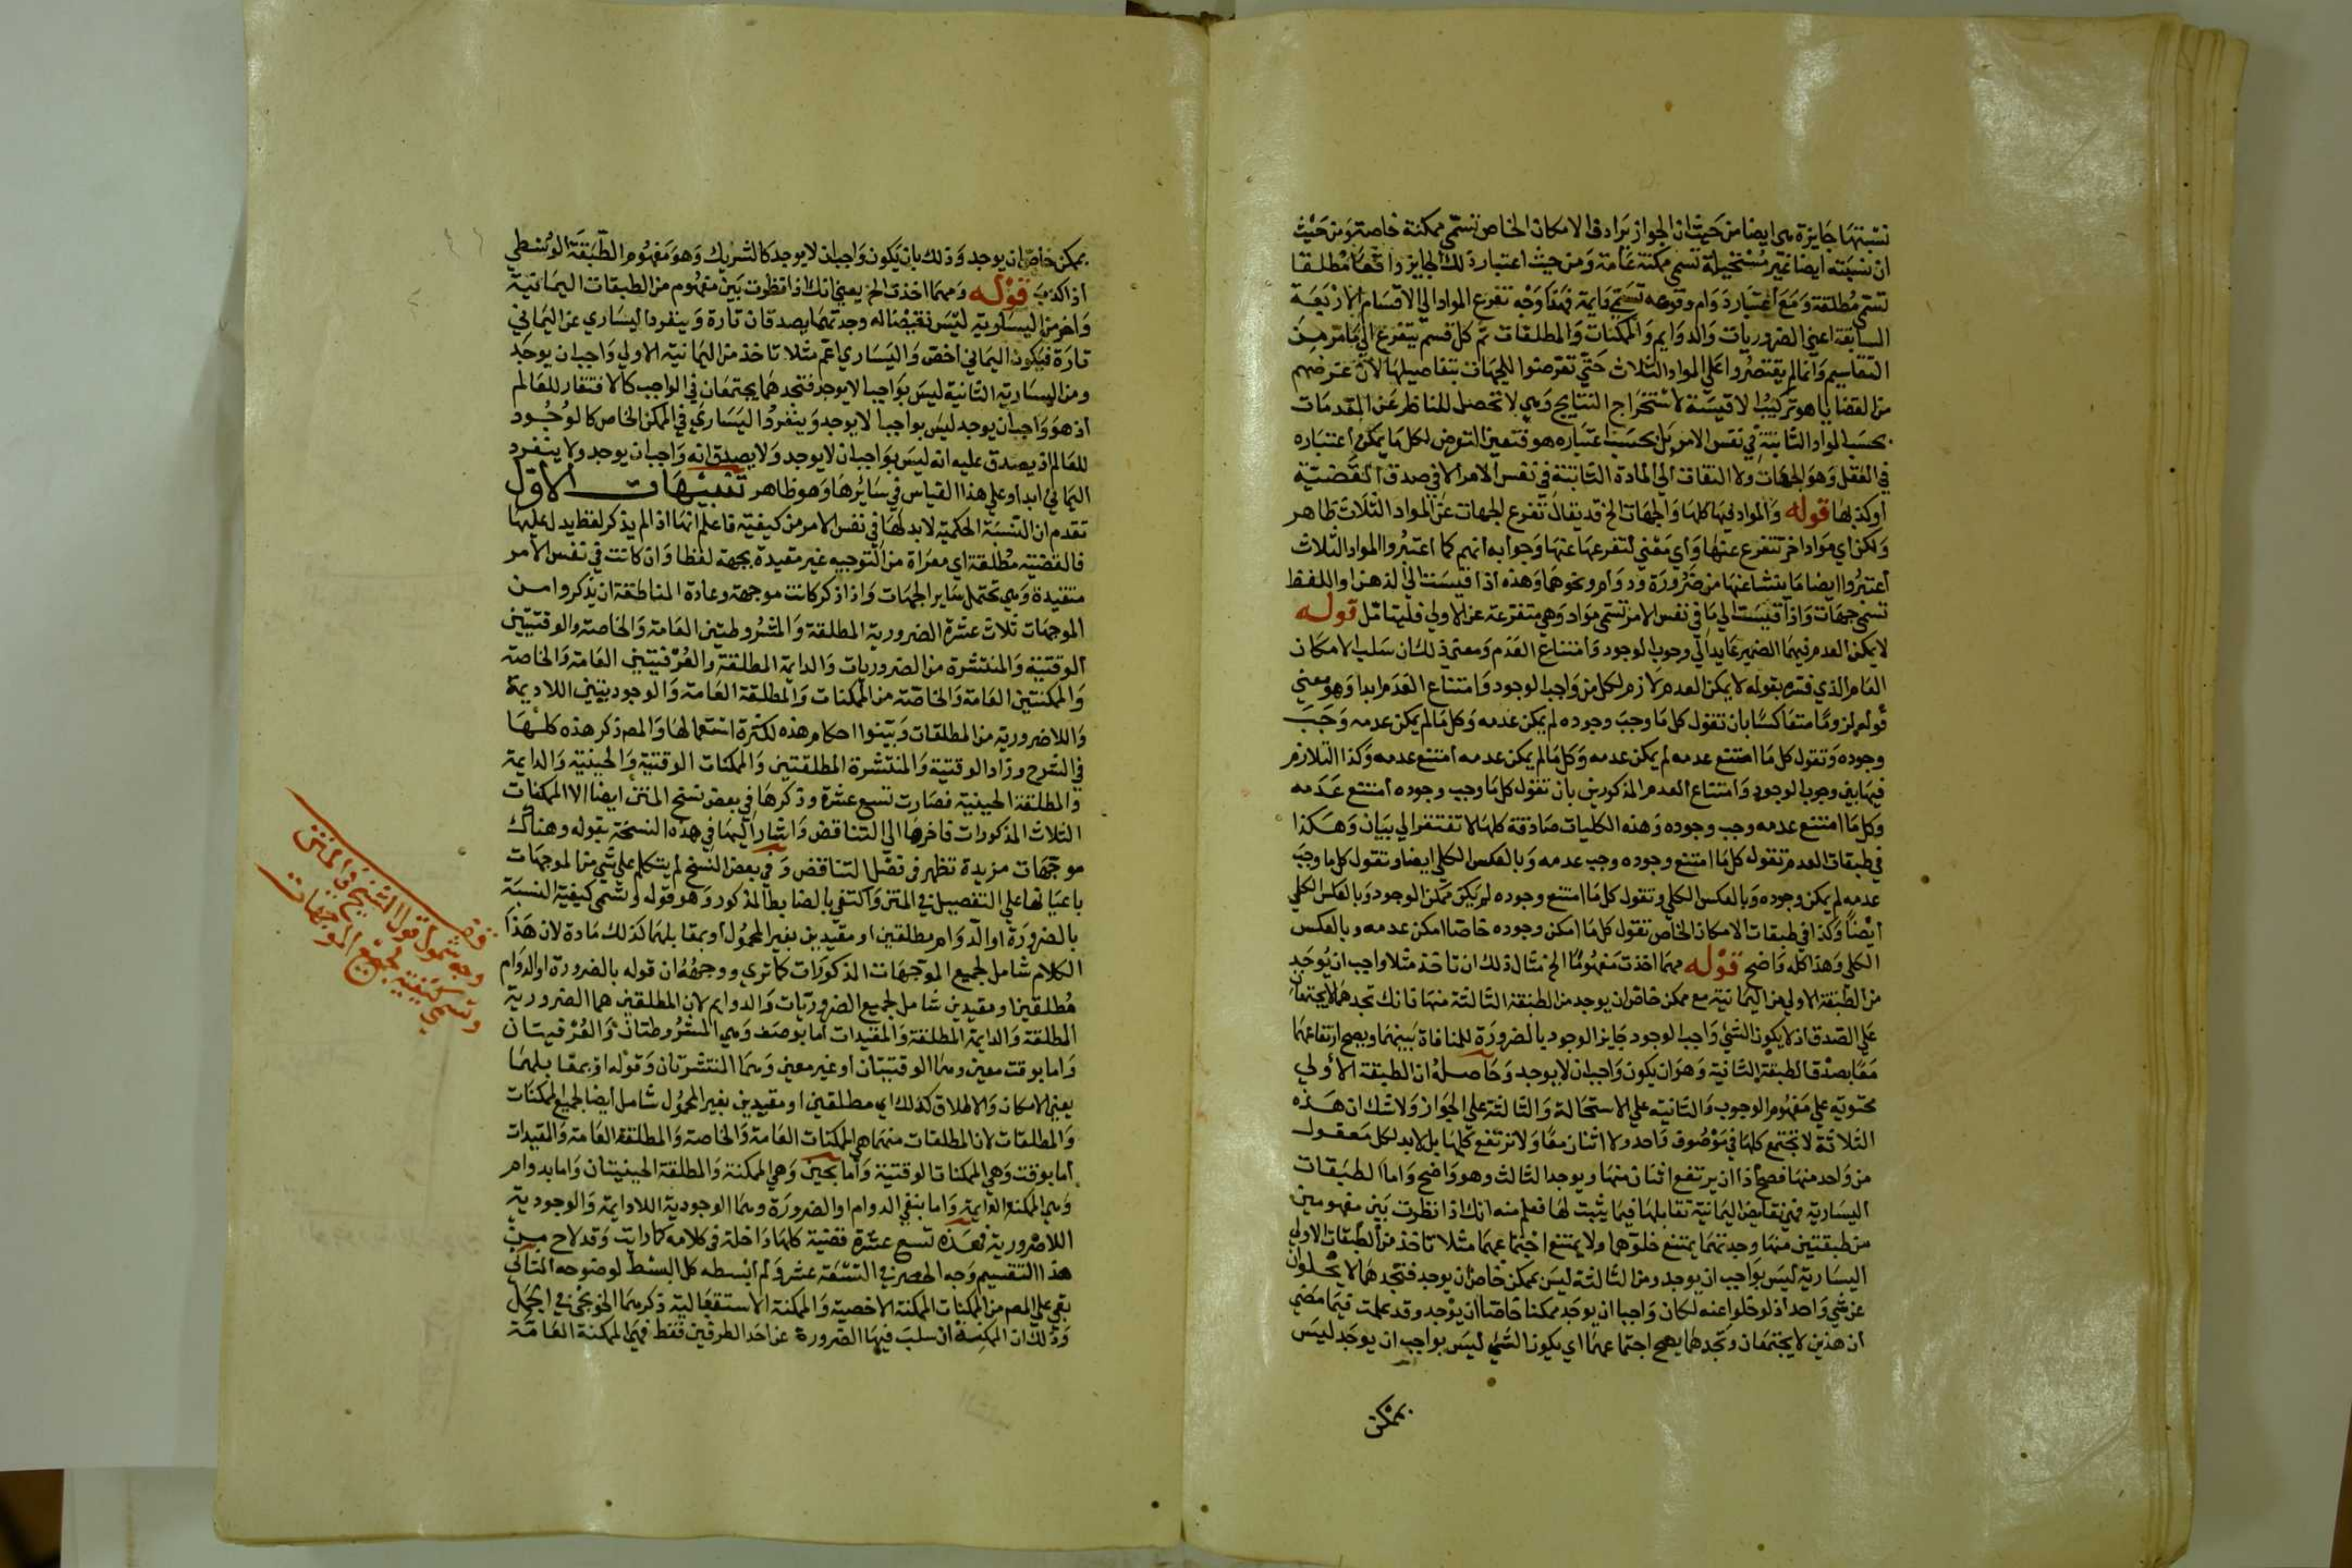 نسبتها جايزة هي ايضا من حيث ان الجواز يرادف الامكان الخاص تسمي ممكنة خاصة ومن حيث
ان نسبته ايضا غير مستحيلة تسمي ممكنة عامة ومن حيث اعتبار ذلك الجايز واقعا مطلقا
تسمي مطلقة ومع اعتبار دوام وقوعه تسمي دايمة فهذا وجه تفرع المواد الي الاقسام الاربعة
السابقة اعني الضروريات والدوايم والممكنات والمطلقات ثم كل قسم يتفرع الي ما مر من
التقاسيم وانما لم يقتصروا علي المواد الثلاث حتي تعرضوا للجهات بتفاصيلها لان غرضهم
من القضايا هو تركيب الاقيسة لاستخراج النتايج وهي لا تحصل للناظر عن المقدمات
بحسب المواد الثابتة في نفس الامر بل بحسب اعتباره هو فتعين التعرض لكل ما يمكن اعتباره
في العقل وهو الجهات ولا التفات الي المادة الثابتة في نفس الامر الا في صدق القضية
او كذبها قوله والمواد فيها كلها والجهات الخ قد يقال تفرع الجهات عن المواد الثلاث ظاهر
ولكن اي مواد اخر تتفرع عنها واي معني لتفرعها عنها وجوابه انهم كما اعتبروا المواد الثلاث
اعتبروا ايضا ما ينشا عنها من ضرورة ودوام ونحوهما وهذه اذا قيست الي الذهن او اللفظ
تسمي جهات واذا قيست الي ما في نفس الامر تسمي مواد وهي متفرعة عن الاولي فليتامل قوله
لا يمكن العدم فيهما الضمير عايد الي وجوب الوجود وامتناع العدم ومعني ذلك ان سلب الامكان
العام الذي فسره بقوله لا يمكن العدم لازم لكل من واجب الوجود وامتناع العدم ابدا وهو معني
قوله لزوما متعاكسا بان تقول كل ما وجب وجوده لم يمكن عدمه وكل ما لم يمكن عدمه وجب
وجوده وتقول كل ما امتنع عدمه لم يمكن عدمه وكل ما لم يمكن عدمه امتنع عدمه وكذا التلازم
فيما بين وجوب الوجود وامتناع العدم المذكورين بان تقول كل ما وجب وجوده امتنع عدمه
وكل ما امتنع عدمه وجب وجوده وهذه الكليات صادقة كلها لا تفتقر الي بيان وهكذا
في طبقات العدم تقول كل ما امتنع وجوده وجب عدمه وبالعكس الكلي ايضا وتقول كل ما وجب
عدمه لم يمكن وجوده وبالعكس الكلي وتقول كل ما امتنع وجوده لم يكن ممكن الوجود وبالعكس الكلي
ايضا وكذا في طبقات الامكان الخاص تقول كل ما امكن وجوده خاصا امكن عدمه وبالعكس
الكلي وهذا كله واضح قوله مهما اخذت مفهوما الخ مثال ذلك ان تاخذ مثلا واجب ان يوجد
من الطبقة الاولي من اليمانية مع ممكن خاص ان يوجد من الطبقة الثالثة منها فانك تجدهما لا يجتمعان
علي الصدق اذ لا يكون الشي واجب الوجود جايز الوجود بالضرورة للمنافاة بينهما ويصح ارتفاعهما
معا بصدق الطبقة الثانية وهو ان يكون واجب ان لا يوجد وحاصله ان الطبقة الاولي
محتوية علي مفهوم الوجوب والثانية علي الاستحالة والثالثة علي الجواز ولا شك ان هذه
الثلاثة لا تجتمع كلها في موصوف واحد ولا اثنان معا ولا ترتفع كلها بل لا بد لكل معقول
من واحد منها فصح اذا ان يرتفع اثنان منها ويوجد الثالث وهو واضح واما الطبقات
اليسارية فهي نقايض اليمانية تقابلها فيما يثبت لها فعلم منه انك اذا نظرت بين مفهومين
من طبقتين منها وجدتهما يمتنع خلوهما ولا يمتنع اجتماعهما مثلا تاخذ من الطبقات الاولي
اليسارية ليس بواجب ان يوجد ومن الثالثة ليس بممكن خاص ان يوجد فتجدهما لا يخلوان
عن شي واحد اذ لو خلوا عنه لكان واجبا ان يوجد ممكنا خاصا ان يوجد وقد علمت فيما مضي
ان هذين لا يجتمعان وتجدهما يصح اجتماعهما اي يكون الشي ليس بواجب ان يوجد ليس
بممكن
بممكن خاص ان يوجد وذلك بان يكون واجب ان لا يوجد كالشريك وهو مفهوم الطبقة الوسطي
اذا كذب قوله ومهما اخذت الخ يعني انك اذا نظرت بين مفهوم من الطبقات اليمانية
واخر من اليسارية ليس نقيضا له وجدتهما يصدقان تارة وينفرد اليساري عن اليماني
تارة فيكون اليماني اخص واليساري اعم مثلا تاخذ من اليمانية الاولي واجب ان يوجد
ومن اليسارية الثانية ليس بواجب الا يوجد فتجدهما يجتمعان في الواجب كالافتقار للعالم
اذ هو واجب ان يوجد ليس بواجب الا يوجد وينفرد اليساري في الممكن الخاص كالوجود
للعالم اذ يصدق عليه انه ليس بواجب ان لا يوجد ولا يصدق انه واجب ان يوجد ولا ينفرد
اليماني ابدا وعلي هذا القياس في سايرها وهو ظاهر تنبيهات الاول
تقدم ان النسبة الحكمية لا بد لها في نفس الامر من كيفية فاعلم انها اذا لم يذكر لفظ يدل عليها
فالقضية مطلقة اي معراة من التوجيه غير مقيدة بجهة لفظا وان كانت في نفس الامر
متقيدة وهي تحتمل ساير الجهات واذا ذكر كانت موجهة وعادة المناطقة ان يذكروا من
الموجهات ثلاث عشرة الضرورية المطلقة والمشروطتين العامة والخاصة والوقتيتين
الوقتية والمنتشرة من الضروريات والدايمة المطلقة والعرفيتين العامة والخاصة
والممكنتين العامة والخاصة من الممكنات والمطلقة العامة والوجوديتين اللاديمة
واللاضرورية من المطلقات وبينوا احكام هذه لكثرة استعمالها والمص ذكر هذه كلها
في الشرح وزاد الوقتية والمنتشرة المطلقتين والممكنات الوقتية والحينية والدايمة
والمطلقة الحينية فصارت تسع عشرة وذكرها في بعض نسخ المتن ايضا الا الممكنات
الثلاث المذكورات فاخرها الي التناقض واشار اليها في هذه النسخة بقوله وهناك
موجهات مزيدة تظهر في فصل التناقض وفي بعض النسخ لم يتكلم علي شي من الموجهات
باعيانها علي التفصيل في المتن واكتفي بالضابط المذكور وهو قوله وتسمي كيفية النسبة
بالضرورة او الدوام مطلقين او مقيدين بغير المحمول او بمقابلهما كذلك مادة لان هذا
الكلام شامل لجميع الموجهات المذكورات كما تري ووجهه ان قوله بالضرورة او الدوام
مطلقين او مقيدين شامل لجميع الضروريات والدوايم لان المطلقين هما الضرورية
المطلقة والدايمة المطلقة والمقيدات اما بوصف وهي المشروطتان والعرفيتان
واما بوقت معين وهما الوقتيتان او غير معين وهما المنتشرتان وقوله او بمقابلهما
يعني الامكان والاطلاق كذلك اي مطلقين او مقيدين بغير المحمول شامل ايضا لجميع الممكنات
والمطلقات لان المطلقات منهما هي الممكنات العامة والخاصة والمطلقة العامة والمقيدات
اما بوقت وهي الممكنات الوقتية واما بحين وهي الممكنة والمطلقة الحينيتان واما بدوام
وهي الممكنة الدايمة واما بنفي الدوام او الضرورة وهما الوجودية اللادايمة والوجودية
اللاضرورية فهذه تسع عشرة قضية كلها داخلة في كلامه كما رايت وقد لاح من
هذا التقسيم وجه الحصر في التسعة عشر ولم ابسطه كل البسط لوضوحه الثاني
بقي علي المص من الممكنات الممكنة الاخصية والممكنة الاستقبالية ذكرهما الخونجي في الجمل
وذلك ان الممكنة ان سلب فيها الضرورة عن احد الطرفين فقط فهي الممكنة العامة
قف
وجه شمول قول الشيخ في المتن
وتسمي كيفية لجميع الموجهات